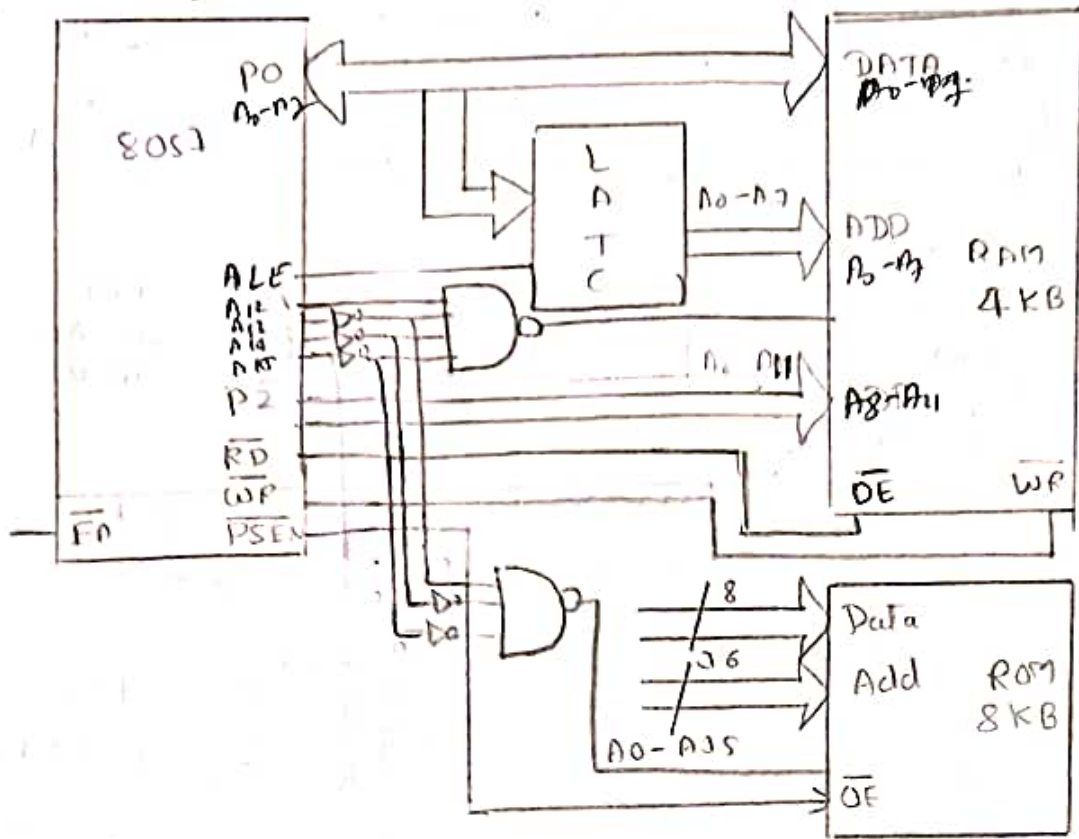 P0
A0-A7
8051
ALE
A12
A13
A14
A15
P2
RD
WR
EA
PSEN
L
A
T
C
A0-A7
DATA
ADD
A0-A7
RAM
4 KB
A11
A8-A11
OE
WR
8
16
A0-A15
Data
Add
ROM
8 KB
OE